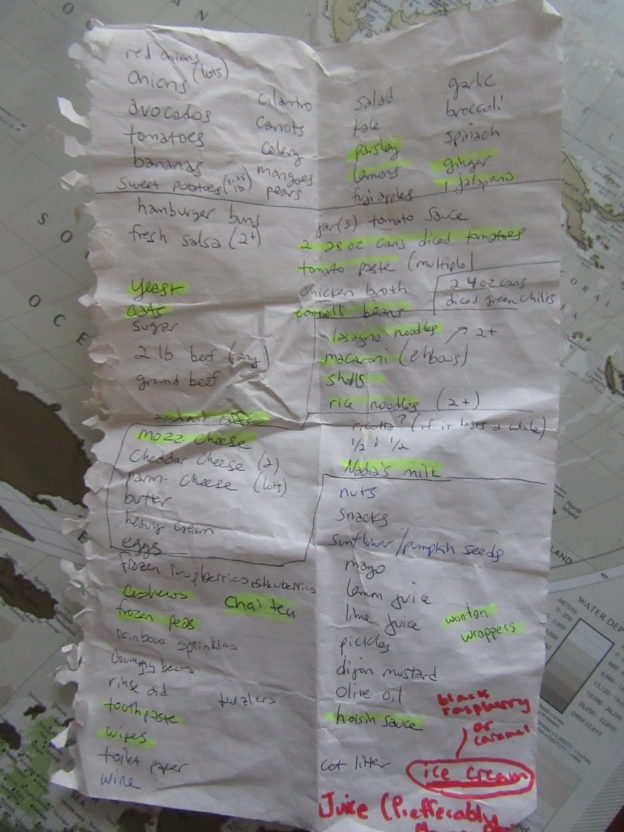 red onions
onions (lots)
avocados
tomatoes
bananas
sweet potatoes
cilantro
carrots
celery
mangoes
pears
salad
kale
parsley
lemons
fuji apples
garlic
broccoli
spinach
ginger
jalapano
hamburger buns
fresh salsa (2+)
yeast
oats
sugar
2 lb beef (any)
ground beef
jar(s) tomato sauce
2 28 oz cans diced tomatoes
tomato paste (multiple)
chicken broth
2 4 oz cans
diced green chilis
beans
lasagna noodles → 2+
macaroni (elbows)
shells
rice noodles (2+)
cheese
mozz cheese
cheddar cheese (2)
parm. cheese (lots)
butter
heavy cream
eggs
ricotta? (if it lasts a while)
1/2 & 1/2
Nadia's milk
nuts
snacks
sunflower/pumpkin seeds
mayo
lemon juice
lime juice
pickles
dijon mustard
olive oil
hoisin sauce
wonton
wrappers
frozen raspberries
cashews
chai tea
frozen peas
rainbow sprinkles
gummy bears
rinse aid
twizlers
toothpaste
wipes
toilet paper
wine
cat litter
black
raspberry
or
caramel
ice cream
Juice (Prefferably
WATER DEP
METERS
LAND
SO